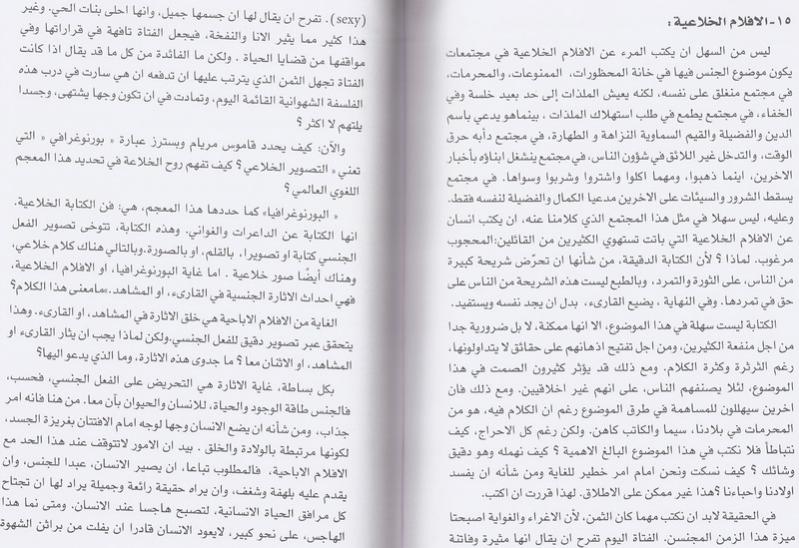 ١٥- الافلام الخلاعية:
ليس من السهل ان يكتب المرء عن الافلام الخلاعية في مجتمعات
يكون موضوع الجنس فيها في خانة المحظورات، الممنوعات، والمحرمات،
في مجتمع منغلق على نفسه، لكنه يعيش الملذات إلى حد بعيد خلسة وفي
الخفاء، في مجتمع يطمع في طلب استهلاك الملذات ، بينماهو يدعي باسم
الدين والفضيلة والقيم السماوية النزاهة و الطهارة، في مجتمع دأبه حرق
الوقت، والتدخل غير اللائق في شؤون الناس، في مجتمع ينشغل ابناؤه بأخبار
الاخرين، اينما ذهبوا، ومهما اكلوا واشتروا وشربوا وسواها. في مجتمع
يسقط الشرور والسيئات على الاخرين مدعيا الكمال والفضيلة لنفسه فقط.
وعليه، ليس سهلا في مثل هذا المجتمع الذي كلامنا عنه، ان يكتب انسان
عن الافلام الخلاعية التي باتت تستهوي الكثيرين من القائلين:المحجوب
مرغوب، لماذا ؟ لأن الكتابة الدقيقة، من شأنها ان تحرّض شريحة كبيرة
من الناس، على الثورة والتمرد، وبالطبع ليست هذه الشريحة من الناس على
حق في تمردها. وفي النهاية ، يضيع القارىء، بدل ان يجد نفسه ويستفيد.
الكتابة ليست سهلة في هذا الموضوع، الا انها ممكنة، لا بل ضرورية جدا
من اجل منفعة الكثيرين، ومن اجل تفتيح اذهانهم على حقائق لا يتداولونها،
رغم الثرثرة وكثرة الكلام. ومع ذلك قد يؤثر كثيرون الصمت في هذا
الموضوع، لئلا يصنفهم الناس، على انهم غير اخلاقيين. ومع ذلك فان
اخرين سيهللون للمساهمة في طرق الموضوع رغم ان الكلام فيه، هو من
المحرمات في بلادنا، سيما والكاتب كاهن. ولكن رغم كل الاحراج، كيف
نتباطأ فلا نكتب في هذا الموضوع البالغ الاهمية ؟ كيف نهمله وهو دقيق
وشائك ؟ كيف نسكت ونحن امام امر خطير للغاية ومن شأنه ان يفسد
اولادنا واحباءنا ؟هذا غير ممكن على الاطلاق. لهذا قررت ان اكتب.
في الحقيقة لابد ان نكتب مهما كان الثمن، لأن الاغراء والغواية اصبحتا
ميزة هذا الزمن المجنسن. الفتاة اليوم تفرح ان يقال انها مثيرة وفاتنة
(sexy). تفرح ان يقال لها ان جسمها جميل، وانها احلى بنات الحي. وغير
هذا كثير مما يثير الانا والنفخة، فيجعل الفتاة تافهة في قراراتها وفي
مواقفها من قضايا الحياة . ولكن ما الفائدة من كل ما قد يقال اذا كانت
الفتاة تجهل الثمن الذي يترتب عليها ان تدفعه ان هي سارت في درب هذه
الفلسفة الشهوانية القائمة اليوم، وتمادت في ان تكون وجها يشتهى، وجسدا
يلتهم لا اكثر ؟
والآن: كيف يحدد قاموس مريام وبسترز عبارة « بورنوغرافي » التي
تعني« التصوير الخلاعي؟ كيف تفهم روح الخلاعة في تحديد هذا المعجم
اللغوي العالمي ؟
« البورنوغرافيا» كما حددها هذا المعجم، هي: فن الكتابة الخلاعية.
انها الكتابة عن الداعرات والغواني. وهذه الكتابة، تتوخى تصوير الفعل
الجنسي كتابة او تصويرا، بالقلم، او بالصورة.وبالتالي هناك كلام خلاعي،
وهناك أيضًا صور خلاعية . اما غاية البورنوغرافيا، او الافلام الخلاعية،
فهي احداث الاثارة الجنسية في القارىء، او المشاهد.،مامعنى هذا الكلام؟
الغاية من الافلام الاباحية هي خلق الاثارة في المشاهد، او القارىء. وهذا
يتحقق عبر تصوير دقيق للفعل الجنسي.ولكن لماذا يجب ان يثار القارىء او
المشاهد، او الاثنان معا ؟ ما جدوى هذه الاثارة، وما الذي يدعو اليها؟
بكل بساطة، غاية الاثارة هي التحريض على الفعل الجنسي، فحسب،
فالجنس طاقة الوجود والحياة، للانسان والحيوان بآن معا. من هنا فانه امر
جذاب، ومن شأنه ان يضع الانسان وجها لوجه امام الافتتان بغريزة الجسد،
لكونها مرتبطة بالولادة والخلق . بيد ان الامور لاتتوقف عند هذا الحد مع
الافلام الاباحية، فالمطلوب تباعا، ان يصير الانسان، عبدا للجنس، وان
يقدم عليه بلهفة وشغف، وان يراه حقيقة رائعة وجميلة يراد لها ان تجتاح
كل مرافق الحياة الانسانية، لتصبح هاجسا عند الانسان. ومتى نما هذا
الهاجس، على نحو كبير، لايعود الانسان قادرا ان يفلت من براثن الشهوة